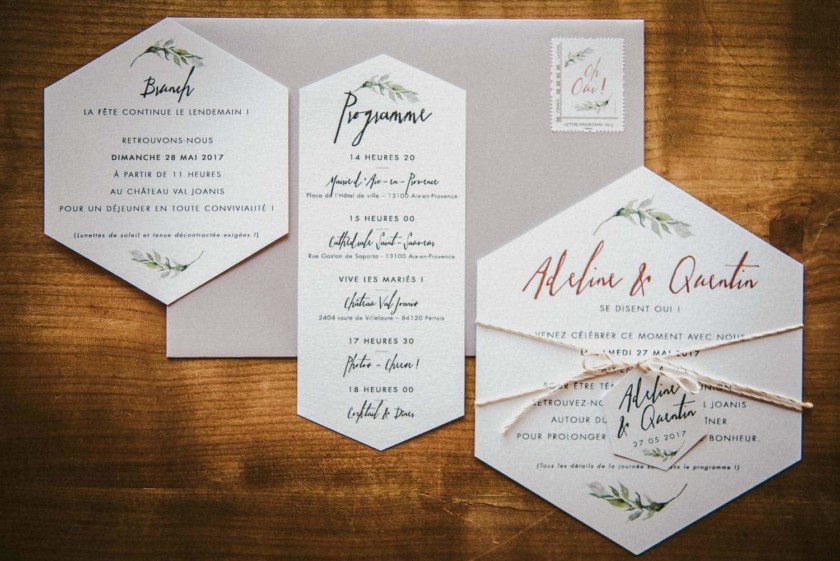 Brunch
LA FÊTE CONTINUE LE LENDEMAIN !
RETROUVONS-NOUS
DIMANCHE 28 MAI 2017
À PARTIR DE 11 HEURES
AU CHÂTEAU VAL JOANIS
POUR UN DÉJEUNER EN TOUTE CONVIVIALITÉ !
(Lunettes de soleil et tenue décontractée exigées !)
Programme
14 HEURES 20
Mairie d'Aix-en-Provence
Place de l'Hôtel de ville – 13100 Aix-en-Provence
15 HEURES 00
Cathédrale Saint-Sauveur
Rue Gaston de Saporta – 13100 Aix-en-Provence
VIVE LES MARIÉS !
Château Val Joanis
2404 route de Villelaure – 84120 Pertuis
17 HEURES 30
Photos - Cheese !
18 HEURES 00
Cocktail & Dîner
Oh
Oui !
Adeline & Quentin
SE DISENT OUI !
VENEZ CÉLÉBRER CE MOMENT AVEC NOUS
SAMEDI 27 MAI 2017
POUR ÊTRE UNION
RETROUVEZ-NOUS JOANIS
AUTOUR
POUR PROLONGER BONHEUR.
(Tous les détails de la journée dans le programme !)
Adeline
& Quentin
27 05 2017